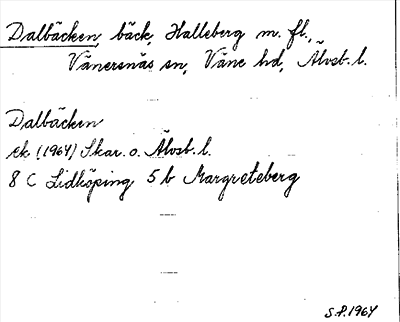 Dalbäcken, bäck, Halleberg m. fl.,
Vänersnäs sn, Väne hd, Älvsb. l.
Dalbäcken
ek (1964) Skar. o. Älvsb. l.
8 C Lidköping 5 b Margreteberg
S.P. 1964